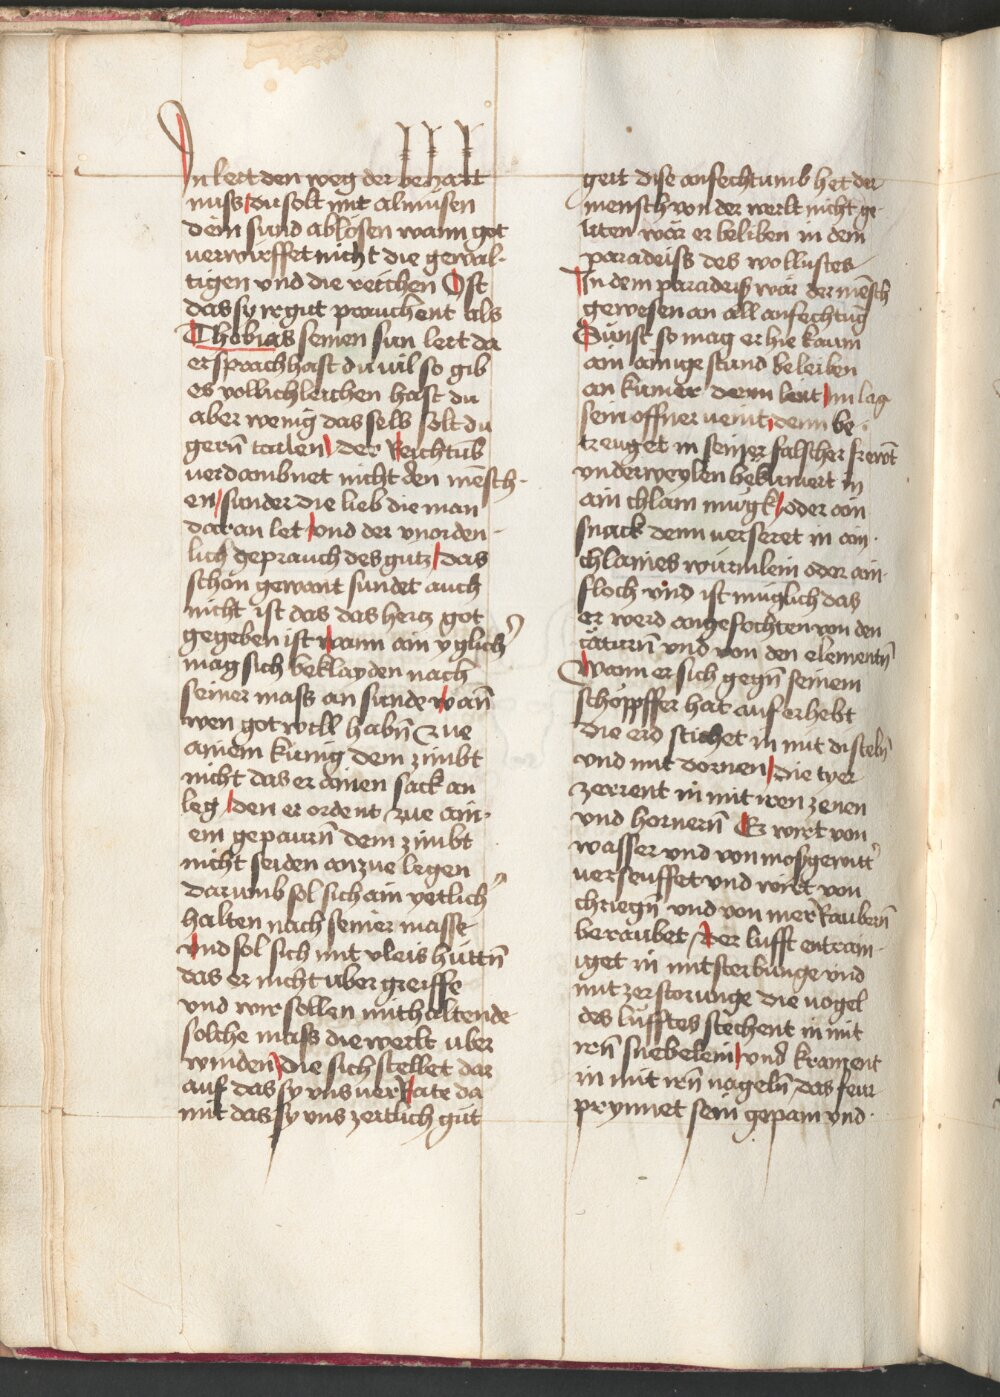 In lert den weg der behalt
nuss du solt mit almusen
dein sund ablösen wann got
verwirffet nicht die gewal-
tigen vnd die reichen Ist
das sy ir gut prauchent als
Thobias seinen sun lert da
er sprach hast du vil so gib
es vollichleichen hast du
aber wenig das selb solt du
gern̄ tailen der Reichtūb
verdambnet nicht den mēsch-
en sunder die lieb die man
daran let vnd der vnorden-
lich geprauch des gutz das
schön gewant sundet auch
nicht ist das das hertz got
gegeben ist wann ain yglich
mag sich beklayden nach
seiner mass an sunde wan̄
wen got will habn̄ Zue
ainem kunig dem zimbt
nicht das er ainen sack an
leg den er ordent zue ain-
em gepaurn̄ dem zimbt
nicht seiden an zue legen
darumb sol sich ain yetlich
halten nach seiner masse
vnd sol sich mit vleis hüttn̄
das er nicht uber greiffe
vnd wir sollen mit haltende
solche mass die werlt uber
winden die sich stellet dar
auf das sy vns ver Rate da
mit das sy vns zertlich güt
geit dise anfechtumb het der
mensch von der werlt nicht ge-
liten wär er beliben in dem
paradeiss des wollustes
In dem paradeiß wär der mēsch
gewesen an all anfechtūg
Sünst so mag er hie kaum
ain ainige stund beleiben
an kumer denn leit im lag
sein offner veint denn be
treuget in seiner falscher frewt
vnderweylen bekumert in
ain chlain mugk oder ain
snack denn verseret in ain
chlaines würmlein oder ain
floch vnd ist müglich das
er werd angefochten von den
säturn̄ vnd von den elementn̄
wann er sich gegn̄ seinem
schöppffer hat auf erhebt
die erd stichet in mit disteln̄
vnd mit dornen die tyer
zerrent in mit iren zenen
vnd hornern̄ Er wirt von
wasser vnd von mosgewitt
verseuffet vnd wirt von
chriegn̄ vnd von mer Raubern̄
beraubet der lufft entrain-
iget in mit sterbunge vnd
mit zerstorunge die vogel
des lufftes stechent in mit
irn̄ snebelein vnd kratzent
in mit irn̄ nageln̄ das feur
prynnet sein gepain vnd